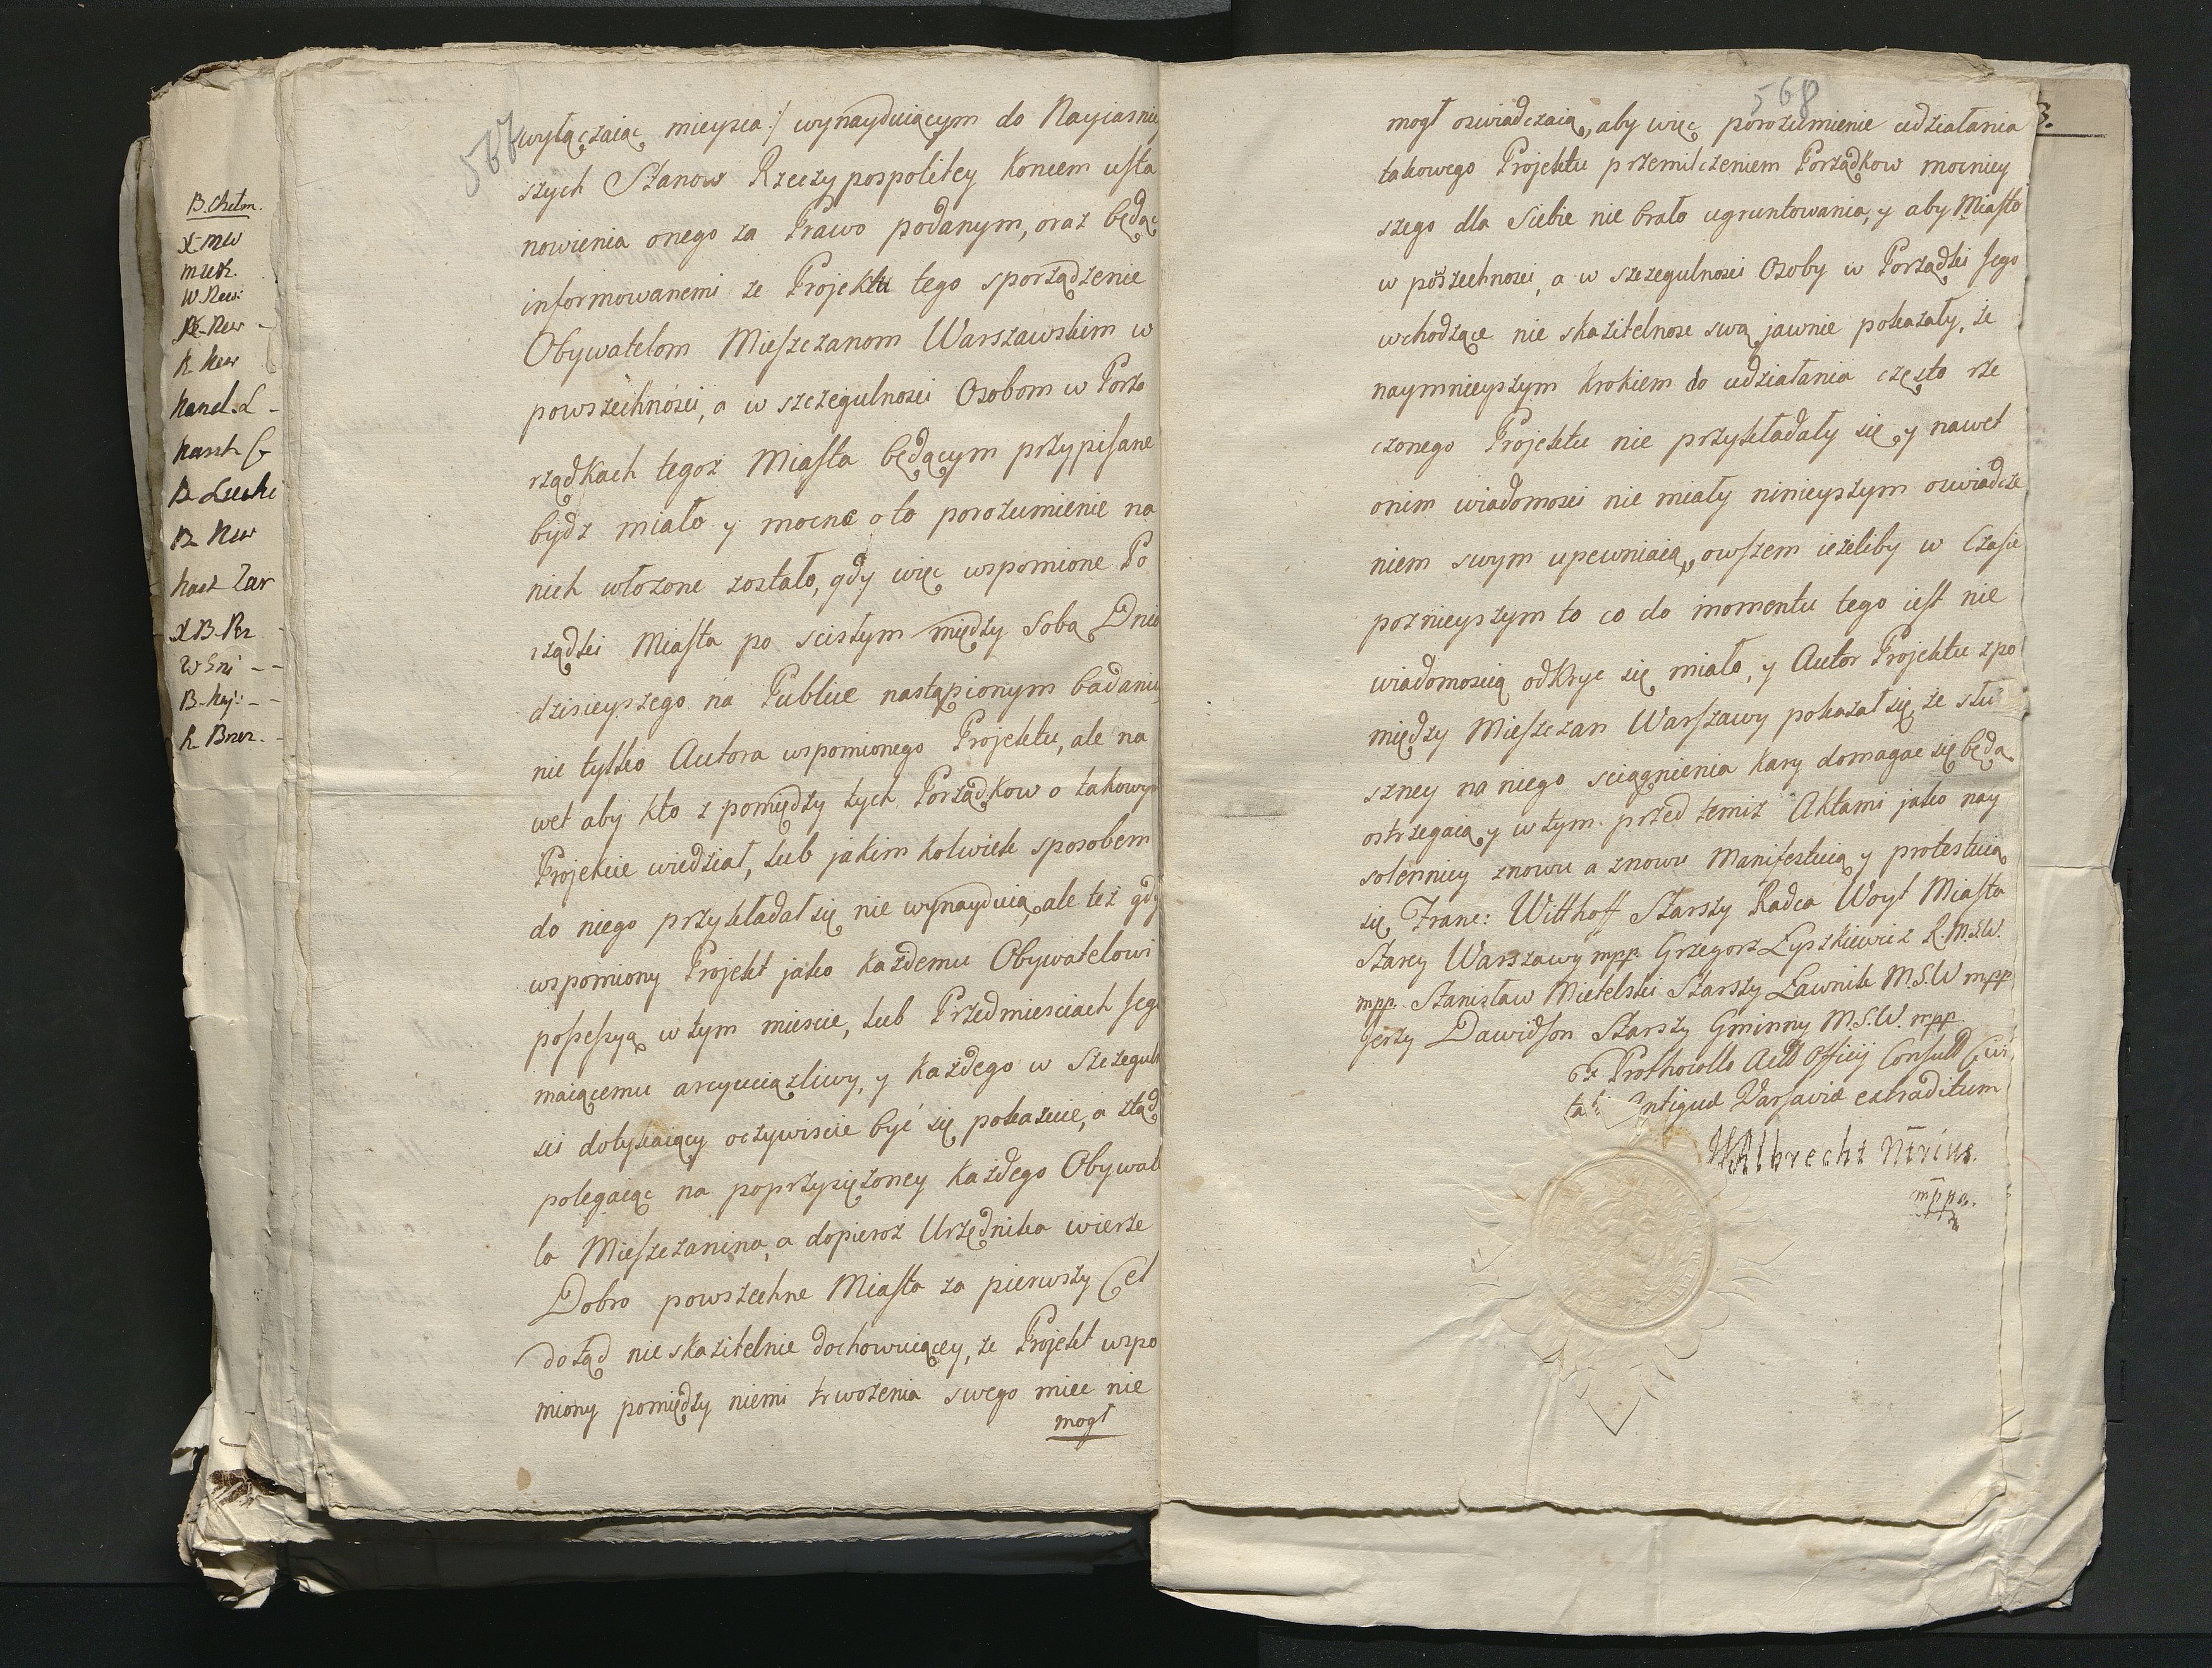 B. Chełm.
X. MW
W Rew:
R. Rew
Kanel. L -
R. Lecki
R. Rew
Kasz Zar
X B. Rz -
W Gni - -
B. Kij: - -
R. Brzez. -
567
wyłączaiąc mieysca :/ wynayduiącym do Nayiasniey
szych Stanow Rzeczypospolitey koncem usta
nowienia onego za Prawo podanym, oraz będąc
informowanemi ze Projektu tego sporządzenie
Obywatelom Mieszczanom Warszawskim w
powszechnosci, a w szczegulnosci Osobom w Porzą
rządkach tegoz Miasta będącym przypisane
bydz miało y mocne o to porozumienie na
nich włozone zostało, gdy więc wspomione Po
rządki Miasta po scisłym między Sobą Dnia
dzisieyszego na Publice nastąpionym badaniu
nie tylko Autora wspomionego Projektu, ale na
wet aby kto z pomiędzy tych Porządkow o takowym
Projekcie wiedział, lub jakim kolwiek sposobem
do niego przykładał się nie wynayduią, ale tez gdy
wspomiony Projekt jako każdemu Obywatelowi
possessyą w tym miescie, lub Przedmiesciach Jego
maiącemu arcyuciązliwy, y każdego w Szczegulno
sci dotykaiący oczywiscie być się pokazuie, a ztąd
polegaiąc na poprzysiężoney każdego Obywate
la Mieszczanina, a dopieroz Urzędnika wierze
Dobro powszechne Miasta za pierwszy Cel
dotąd nieskazitelnie dochowuiącey, ze Projekt wspo
miony pomiędzy niemi tworzenia swego miec nie
mogł
568
3.
mogł oswiadczaią, aby więc porozumienie udziałania
takowego Projektu przemilczeniem Porządkow mocniey
szego dla Siebie nie brało ugruntowania, y aby Miasto
w poszechnosci, a w szczegulnosci Osoby w Porządki Jego
wchodzące nie skazitelnosc swą jawnie pokazały, ze
naymnieyszym krokiem do udziałania często rze
czonego Projektu nie przykładały się y nawet
onim wiadomosci nie miały ninieyszym oswiadcze
niem swym upewniaią, owszem iezeliby w Czasie
poznieyszym to co do momentu tego iest nie
wiadomoscią odkryc się miało, y Autor Projektu zpo
między Mieszczan Warszawy pokazał się, ze słu
szney na niego sciągnienia kary domagac się będą
ostrzegaią y w tym przed temiz Aktami jako nay
solenniey znowu a znowu Manifestuią y protestuią
się Franc: Witthoff Starszy Radca Woyt Miasta
Starey Warszawy mpp. Grzegorz Łyszkiewicz R.M.S.W.
mpp. Stanisław Mietelski Starszy Ławnik M.S.W mpp
Jerzy Dawidson Starszy Gminny M.S.W. mpp.
Ex Prothocollo Actt Officij Consull Civi
tatis Antiquæ Varsaviæ extraditum
WAlbrecht Nrius.
mppa.